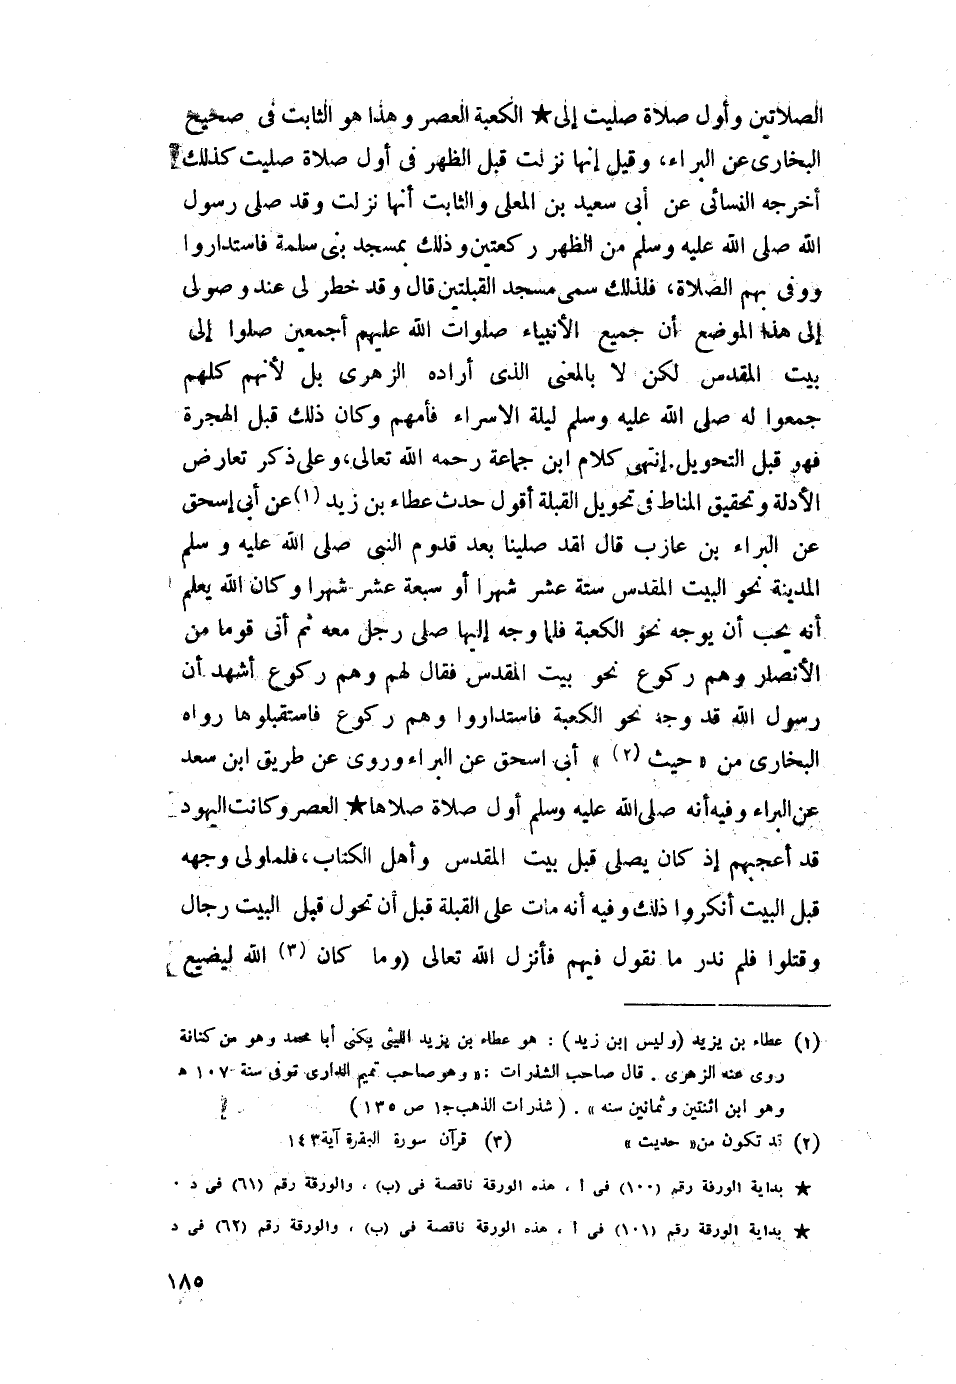 الصلاتين وأول صلاة صليت إلى★ الكعبة العصر وهذا هو الثابت فى صحيح
البخارى عن البراء، وقيل إنها نزلت قبل الظهر فى أول صلاة صليت كذلك
أخرجه النسائى عن أبى سعيد بن المعلى والثابت أنها نزلت وقد صلى رسول
الله صلى الله عليه وسلم من الظهر ركعتين وذلك بمسجد بنى سلمة فاستداروا
ووفى بهم الصلاة، فلذلك سمى مسجد القبلتين قال وقد خطر لى عند وصولى
إلى هذا الموضع أن جميع الأنبياء صلوات الله عليهم أجمعين صلوا إلى
بيت المقدس لكن لا بالمعنى الذى أراده الزهرى بل لأنهم كلهم
جمعوا له صلى الله عليه وسلم ليلة الاسراء فأمهم وكان ذلك قبل الهجرة
فهو قبل التحويل. إنتهى كلام ابن جماعة رحمه الله تعالى، وعلى ذكر تعارض
الأدلة وتحقيق المناط فى تحويل القبلة أقول حدث عطاء بن زيد (١) عن أبى إسحق
عن البراء بن عازب قال لقد صلينا بعد قدوم النبى صلى الله عليه وسلم
المدينة نحو البيت المقدس ستة عشر شهرا أو سبعة عشر شهرا وكان الله يعلم
أنه يحب أن يوجه نحو الكعبة فلما وجه إليها صلى رجل معه ثم أتى قوما من
الأنصار وهم ركوع نحو بيت المقدس فقال لهم وهم ركوع أشهد أن
رسول الله قد وجه نحو الكعبة فاستداروا وهم ركوع فاستقبلوها رواه
البخارى من « حيث (٢) » أبى اسحق عن البراء وروى عن طريق ابن سعد
عن البراء وفيه أنه صلى الله عليه وسلم أول صلاة صلاها★ العصر وكانت اليهود
قد أعجبهم إذ كان يصلى قبل بيت المقدس وأهل الكتاب، فلما ولى وجهه
قبل البيت أنكروا ذلك وفيه أنه مات على القبلة قبل أن تحول قبل البيت رجال
وقتلوا فلم ندر ما نقول فيهم فأنزل الله تعالى (وما كان (٣) الله ليضيع
(١) عطاء بن يزيد (وليس إبن زيد) : هو عطاء بن يزيد الليثى يكنى أبا محمد وهو من كنانة
روى عنه الزهرى . قال صاحب الشذرات :« وهو صاحب تميم الدارى توفى سنة ١٠٧ هـ
وهو ابن اثنتين وثمانين سنه » . ( شذرات الذهب جـ١ ص ١٣٥ )
(٢) قد تكون من« حديث » (٣) قرآن سورة البقرة آية ١٤٣
★ بداية الورقة رقم (١٠٠) فى أ ، هذه الورقة ناقصة فى (ب) ، والورقة رقم (٦١) فى د ٠
★ بداية الورقة رقم (١٠١) فى أ ، هذه الورقة ناقصة فى (ب) ، والورقة رقم (٦٢) فى د
١٨٥